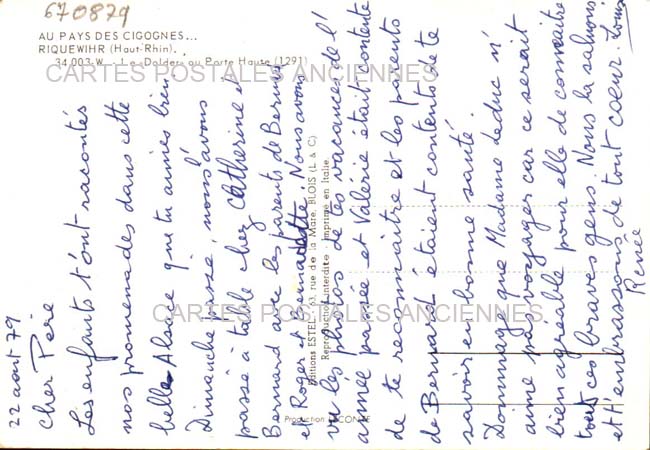 670879
AU PAYS DES CIGOGNES...
RIQUEWIHR (Haut-Rhin).
34.003-W - Le Dolder ou Porte Haute (1291)
CARTES POSTALES ANCIENNES
CARTES POSTALES ANCIENNES
Editions ESTEL, 63, rue de la Mare, BLOIS (L & C)
Reproduction interdite - Imprimé en Italie
Production LECONTE
22 aout 79
Cher Père
Les enfants t'ont racontés
nos promenades dans cette
belle Alsace que tu aimes bien
Dimanche passé, nous avons
passé à table chez Catherine et
Bernard avec les parents de Bernard
et Roger et Bernadette. Nous avons
vu les photos de tes vacances de l'
année passée et Valérie était contente
de te reconnaitre et les parents
de Bernard étaient contents de te
savoir en bonne santé.
Dommage que Madame Leduc n'
aime pas voyager car ce serait
bien agréable pour elle de connaitre
tout ces braves gens. Nous la saluons
et t'embrassons de tout coeur. Louis
Renée